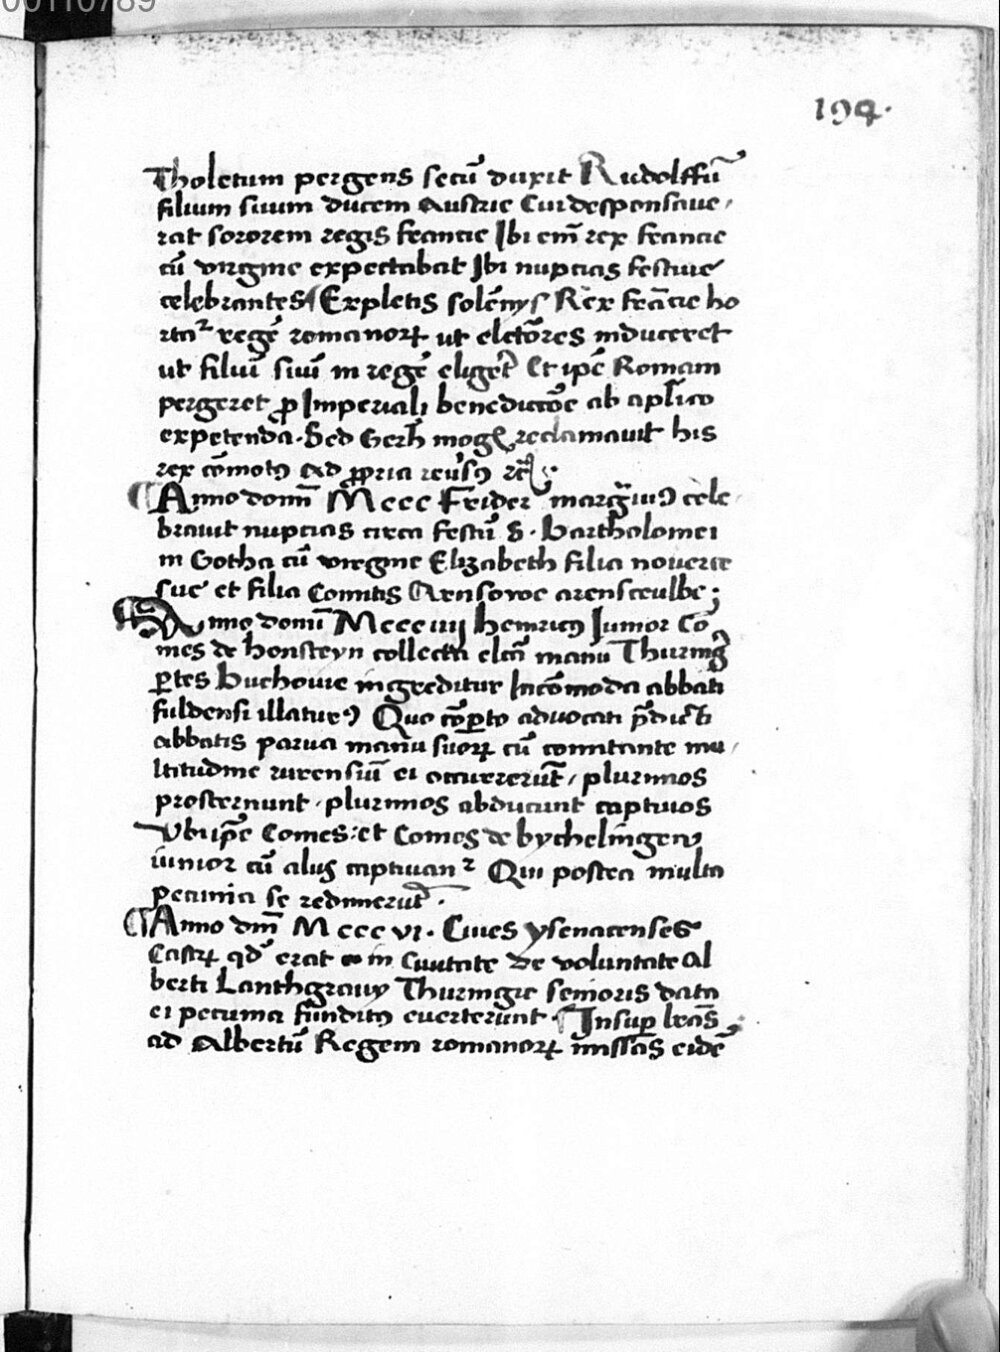 00110789
194.
Tholetum pergens secū duxit Rudolffū
filium suum ducem Austrie Cui desponsaue,
rat sororem regis francie Ibi em̄ rex francie
cū virgine expectabat Ibi nuptias festiue
celebrantes Expletis solēnijs Rex frācie ho
rtaꝛ regē romanoꝝ ut electōres induceret
ut filiū suū in regē eligeret Et ipē Romam
pergeret ꝓ Imperiali benedictōe ab aplico
expetenda. Sed Gerh mog reclamauit his
rex cōmotꝰ ad ꝓpria reuersꝰ
Anno domī Mccc Frider margrauiꝰ cele
brauit nuptias circa festū S. Bartholomei
in Gotha cū virgine Elizabeth filia nouerce
sue et filia Comitis Arnsowe arensceulbe ;
Anno domī Mcccuij henricꝰ Iunior Co
mes de honsteyn collecta elcā manu Thuring
ꝑtes Buchouie ingreditur Incōmoda abbati
fuldensi illaturꝰ Quo cōꝑto aduocati p̄dicti
abbatis parua manu suoꝝ cū comitante mu,
ltitudine rurensiū ei occurrerūt, plurimos
prosternunt, plurimos abducunt captiuos
Vbi ipē Comes : et Comes de bychelingen
iunior cū alijs captiuanꝛ Qui postea multa
pecunia se redimerūt.
Anno dm̄ Mcccvi. Ciues ysenacenses
Castꝝ qd erat in Ciuitate de voluntate Al
berti Lanthgrauij Thuringie senioris data
ei pecunia funditꝰ euerterunt. Insuꝑ lrās
ad Albertū Regem romanoꝝ missas eidē